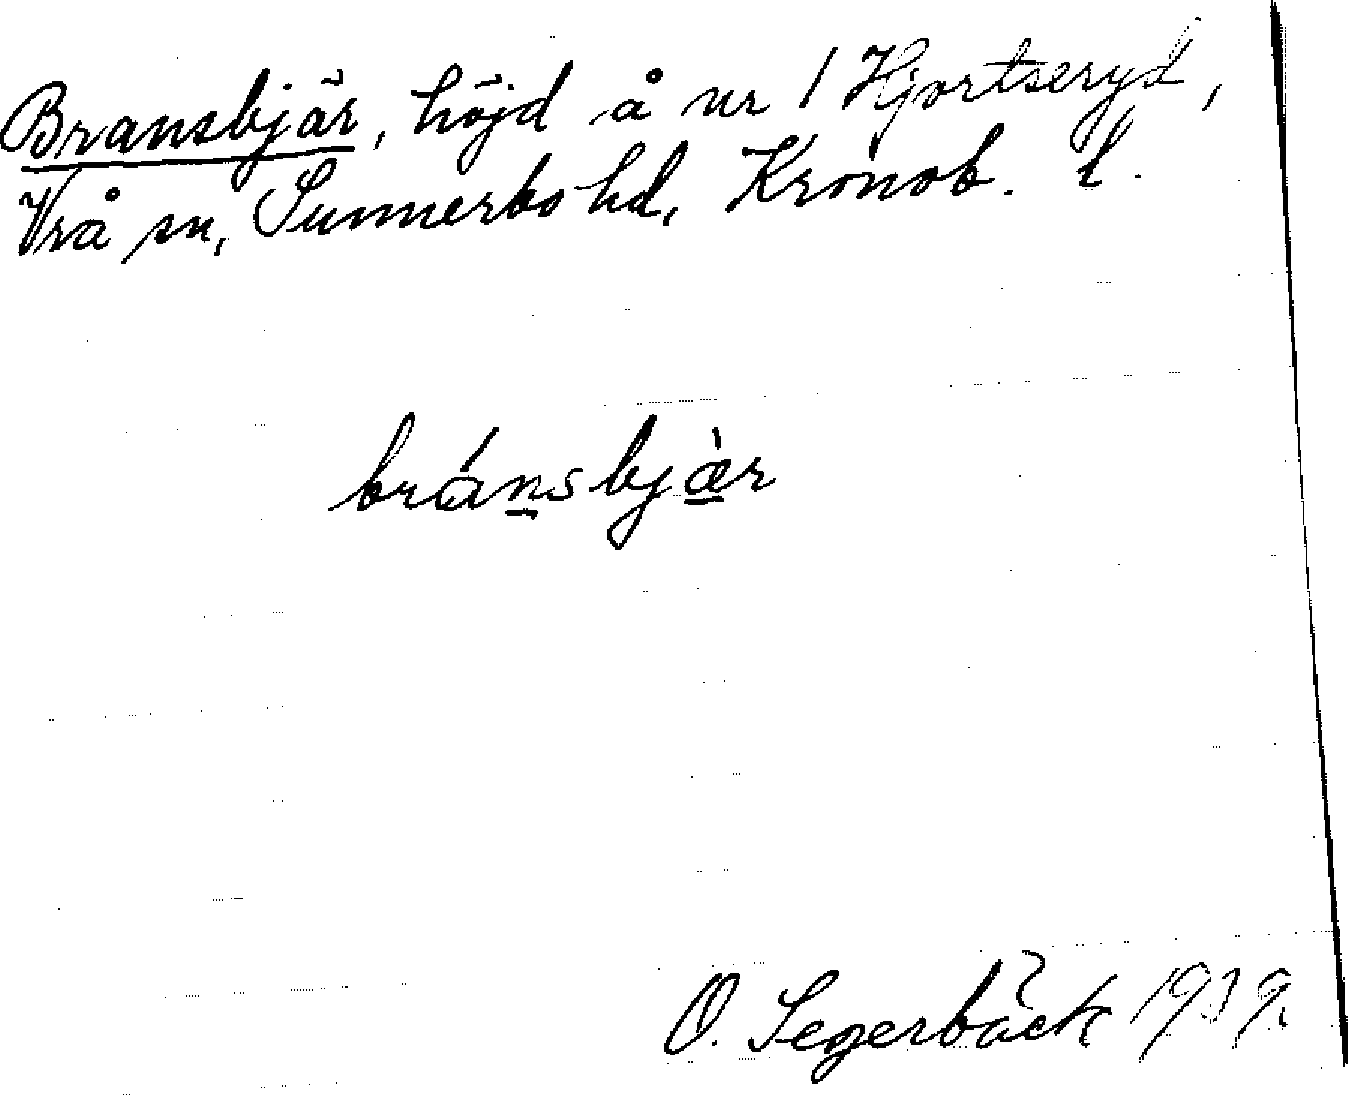 Bransbjär, höjd å nr 1 Hjortseryd,
Vrå sn, Sunnerbo hd, Kronob. l.
bránsbjæ̀r
O. Segerbäck 1939.